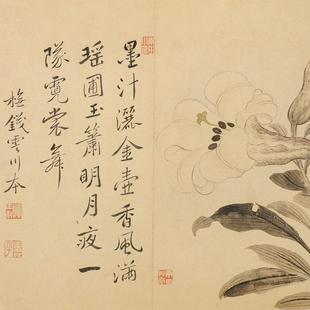 墨汁灑金壺香風滿
瑶圃玉簫明月夜一
隊霓裳舞
橅錢雪川本